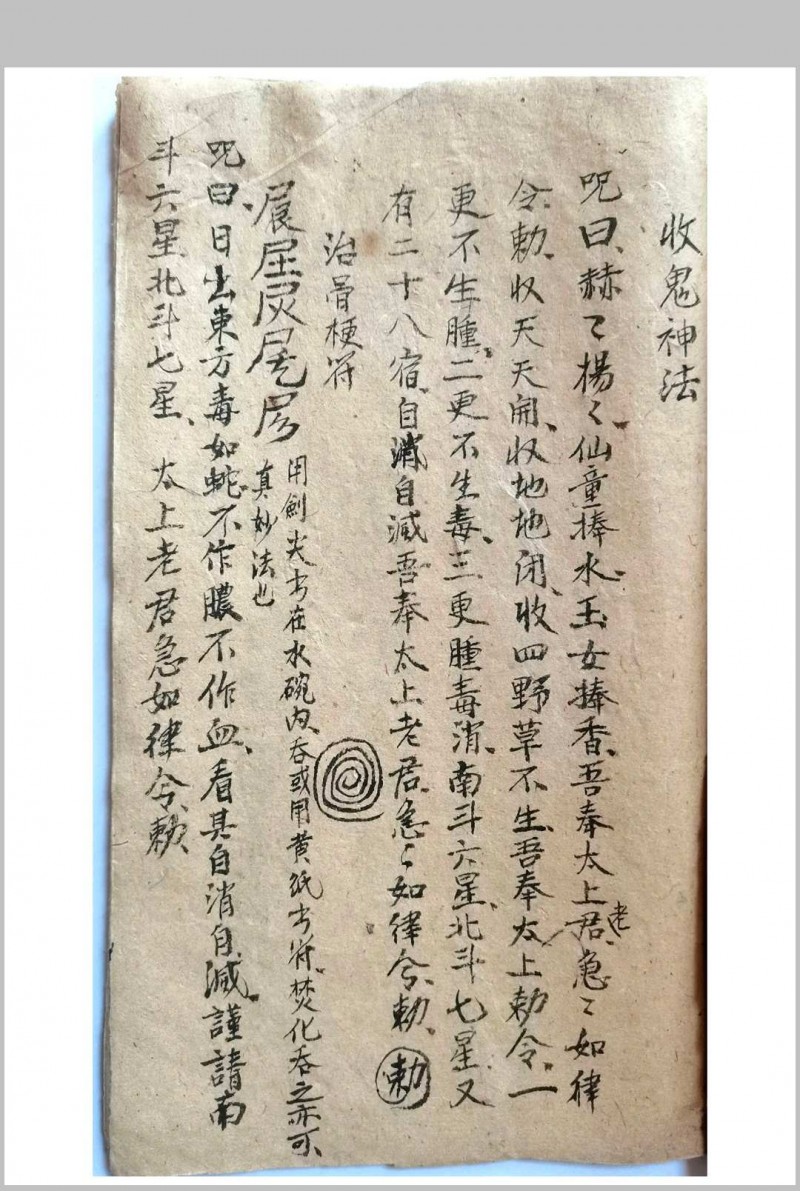 收鬼神法
咒曰、赫〻楊〻、仙童捧水、玉女捧香、吾奉太上老君、急〻如律
令、勅、收天天開、收地地闭、收四野草不生、吾奉太上勅令、一
更不生腫、二更不生毒、三更腫毒消、南斗六星、北斗七星、又
有二十八宿、自消自减、吾奉太上老君、急〻如律令、勅、勅
治骨梗符
用劍尖书在水碗内、吞或用黄纸书符、焚化吞之亦可、
真妙法也
咒曰、日出東方毒如蛇、不作膿不作血、看其自消自减、謹請南
斗六星北斗七星、太上老君急如律令、勅